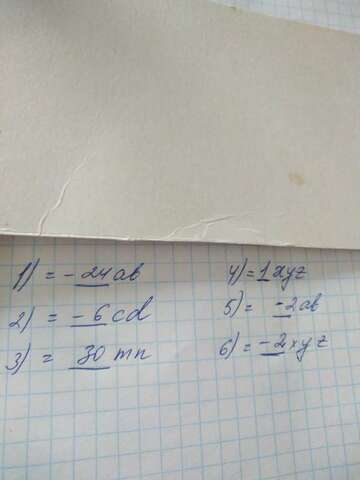 1) = -24ab
2) = -6cd
3) = 30mn
4) = 1xyz
5) = -2ab
6) = -2xyz